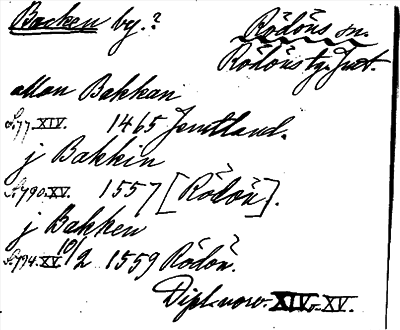 Backen by.?
Rödöns sn.
Rödöns tg. Jmt.
allan Bakkan
s. 77. XIV. 1465 Jemtland.
j Bakkin
s. 790. XV. 1557 [Rödön].
j Bakken
s. 794. XV. 10/2 1559 Rödön.
Dipl. norv. XIV. XV.